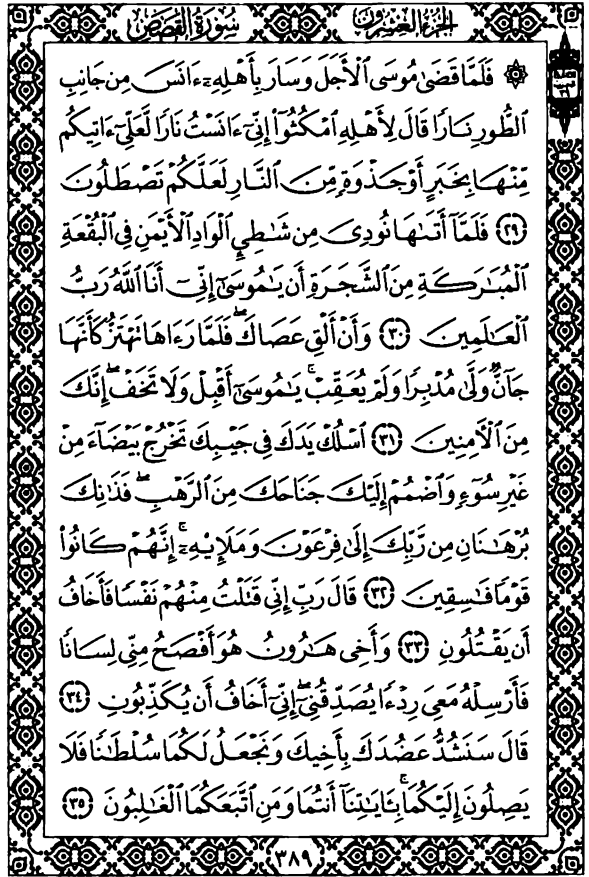 سُورَةُ القَصَصِ
الجُزْءُ العِشْرُونَ
۞ فَلَمَّا قَضَىٰ مُوسَى ٱلْأَجَلَ وَسَارَ بِأَهْلِهِۦٓ ءَانَسَ مِن جَانِبِ
ٱلطُّورِ نَارًا قَالَ لِأَهْلِهِ ٱمْكُثُوٓا۟ إِنِّىٓ ءَانَسْتُ نَارًا لَّعَلِّىٓ ءَاتِيكُم
مِّنْهَا بِخَبَرٍ أَوْ جَذْوَةٍ مِّنَ ٱلنَّارِ لَعَلَّكُمْ تَصْطَلُونَ
﴿٢٩﴾ فَلَمَّآ أَتَىٰهَا نُودِىَ مِن شَٰطِئِ ٱلْوَادِ ٱلْأَيْمَنِ فِى ٱلْبُقْعَةِ
ٱلْمُبَٰرَكَةِ مِنَ ٱلشَّجَرَةِ أَن يَٰمُوسَىٰٓ إِنِّىٓ أَنَا ٱللَّهُ رَبُّ
ٱلْعَٰلَمِينَ ﴿٣٠﴾ وَأَنْ أَلْقِ عَصَاكَ ۖ فَلَمَّا رَءَاهَا تَهْتَزُّ كَأَنَّهَا
جَآنٌّ وَلَّىٰ مُدْبِرًا وَلَمْ يُعَقِّبْ ۚ يَٰمُوسَىٰٓ أَقْبِلْ وَلَا تَخَفْ ۖ إِنَّكَ
مِنَ ٱلْءَامِنِينَ ﴿٣١﴾ ٱسْلُكْ يَدَكَ فِى جَيْبِكَ تَخْرُجْ بَيْضَآءَ مِنْ
غَيْرِ سُوٓءٍ وَٱضْمُمْ إِلَيْكَ جَنَاحَكَ مِنَ ٱلرَّهْبِ ۖ فَذَٰنِكَ
بُرْهَٰنَانِ مِن رَّبِّكَ إِلَىٰ فِرْعَوْنَ وَمَلَإِي۟هِۦٓ ۚ إِنَّهُمْ كَانُوا۟
قَوْمًا فَٰسِقِينَ ﴿٣٢﴾ قَالَ رَبِّ إِنِّى قَتَلْتُ مِنْهُمْ نَفْسًا فَأَخَافُ
أَن يَقْتُلُونِ ﴿٣٣﴾ وَأَخِى هَٰرُونُ هُوَ أَفْصَحُ مِنِّى لِسَانًا
فَأَرْسِلْهُ مَعِىَ رِدْءًا يُصَدِّقُنِىٓ ۖ إِنِّىٓ أَخَافُ أَن يُكَذِّبُونِ ﴿٣٤﴾
قَالَ سَنَشُدُّ عَضُدَكَ بِأَخِيكَ وَنَجْعَلُ لَكُمَا سُلْطَٰنًا فَلَا
يَصِلُونَ إِلَيْكُمَا ۚ بِـَٔايَٰتِنَآ أَنتُمَا وَمَنِ ٱتَّبَعَكُمَا ٱلْغَٰلِبُونَ ﴿٣٥﴾
٣٨٩